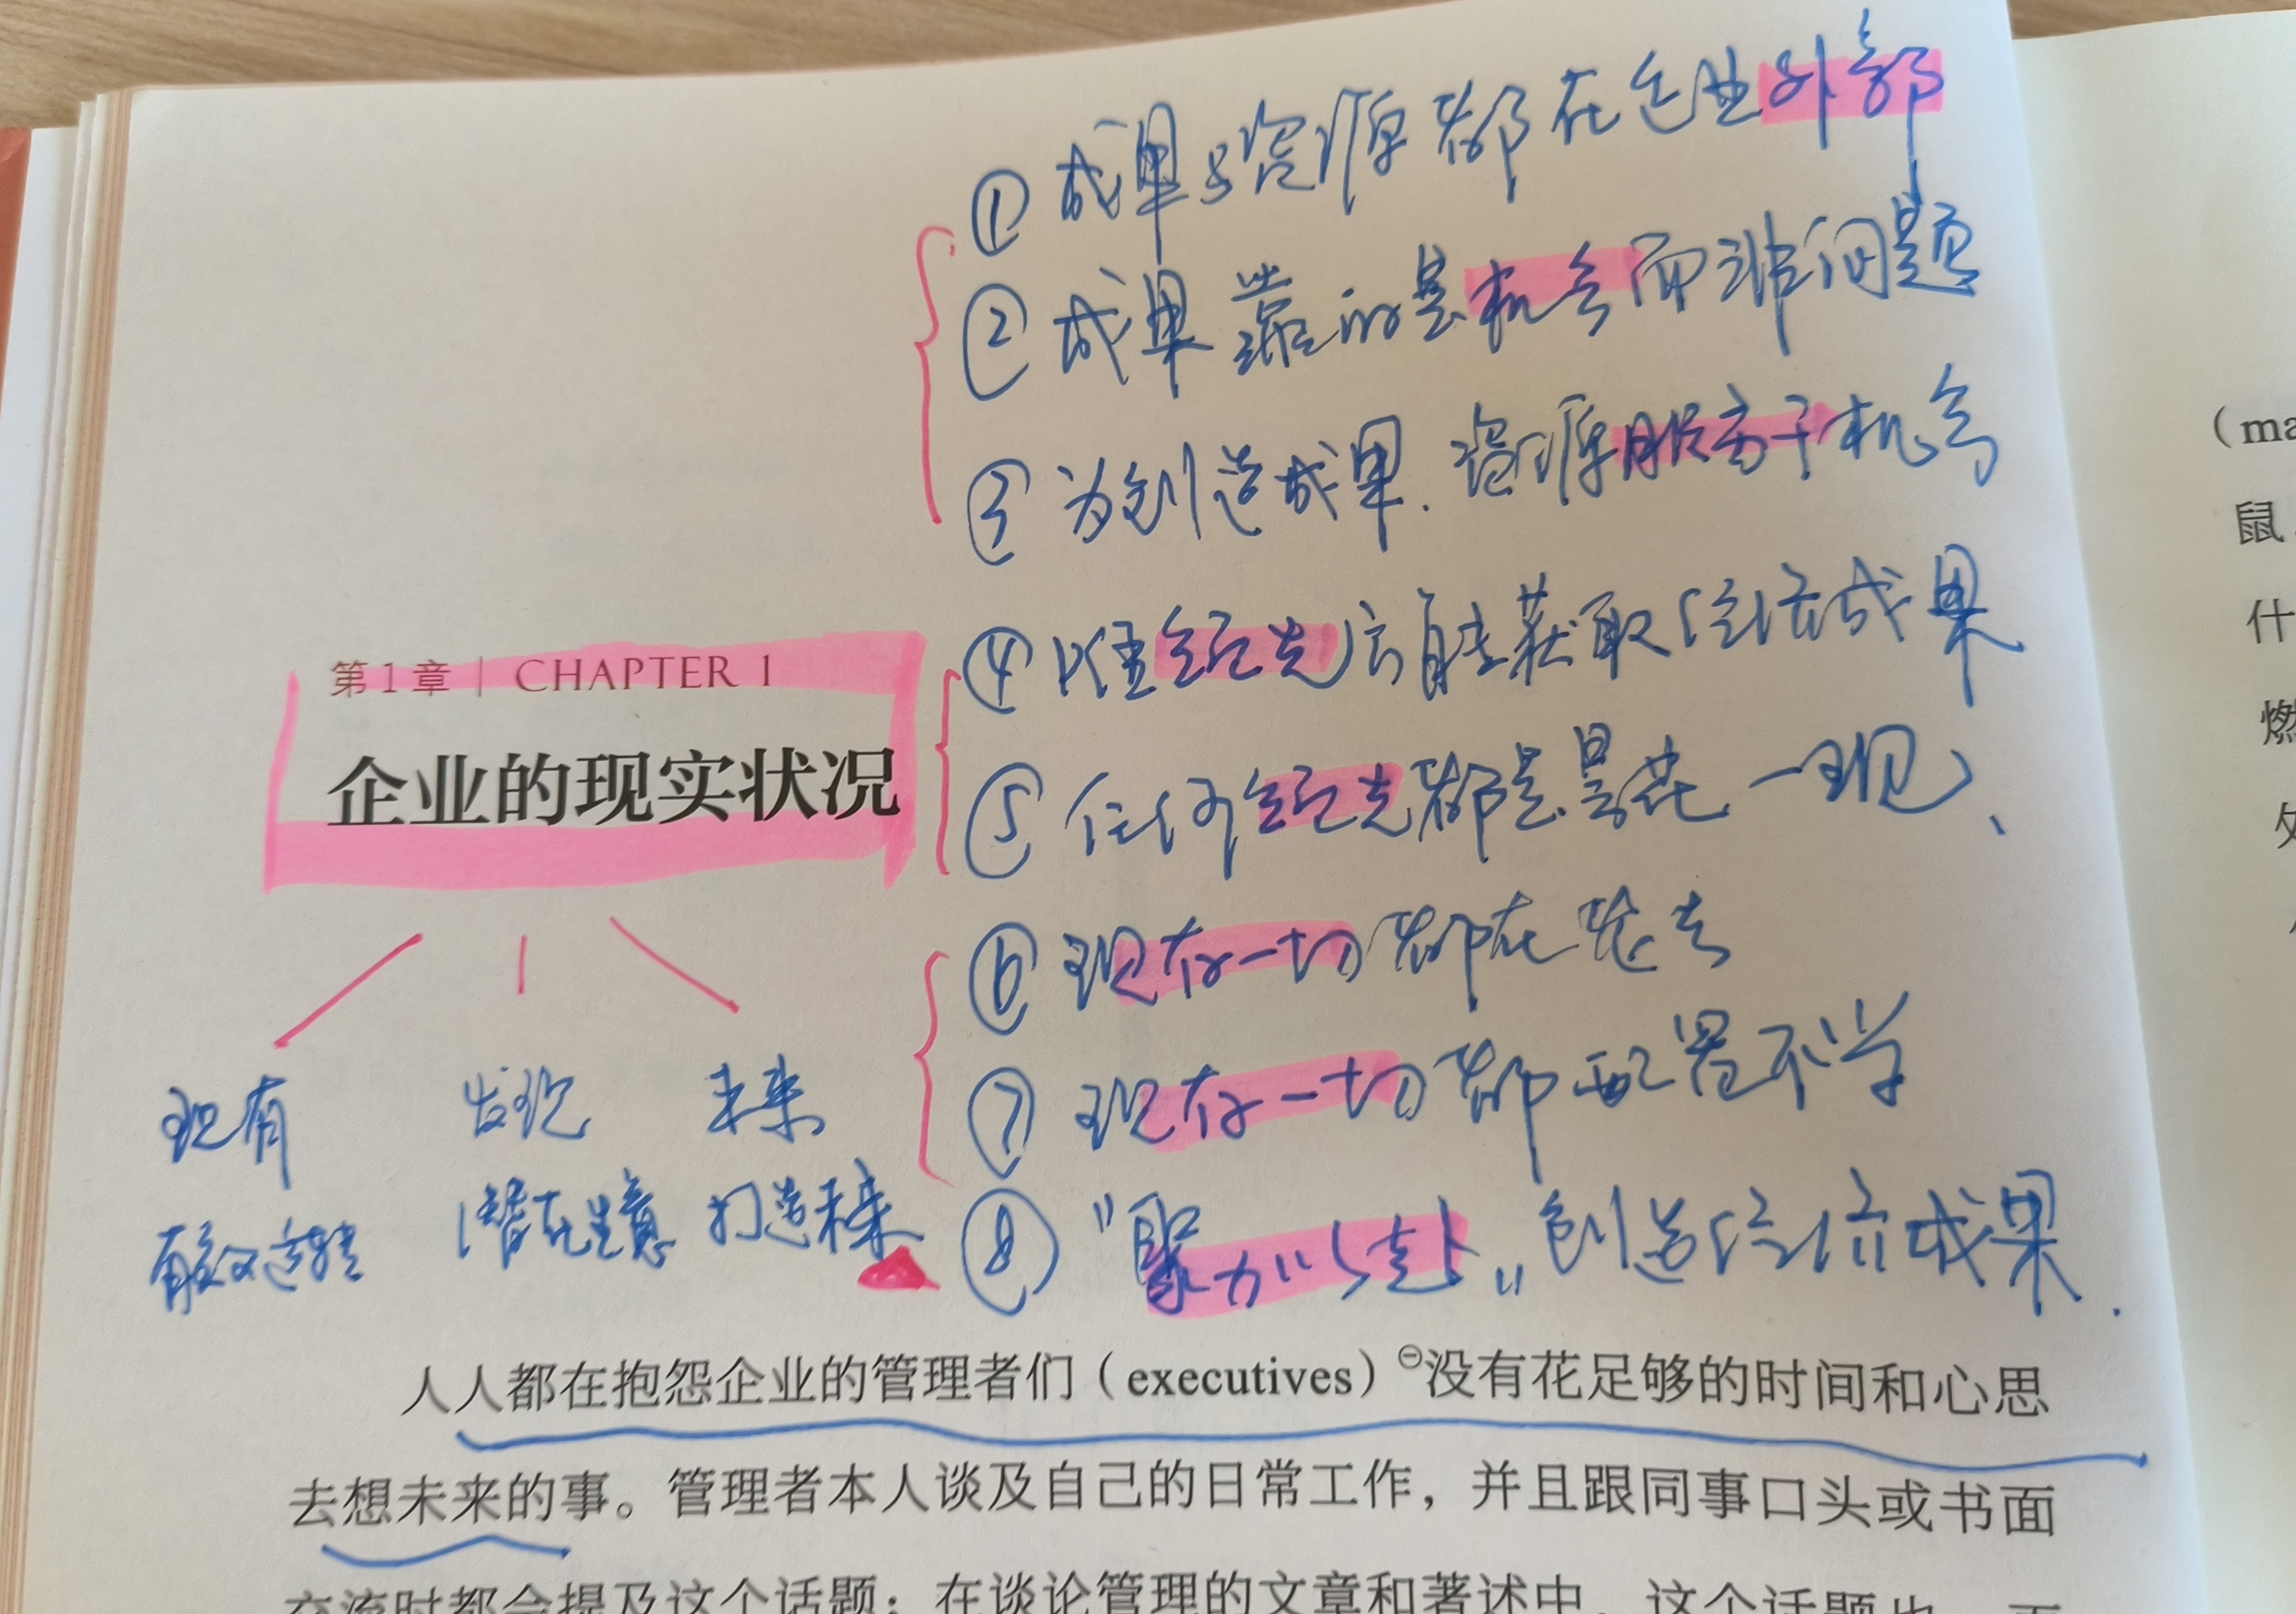 ① 成果与资源都在企业外部
② 成果靠的是机会而非问题
③ 为创造成果.资源服务于机会
④ 唯领先方能获取经济成果
⑤ 任何领先都是昙花一现、
⑥ 现存一切都在老去
⑦ 现存一切都配置不当
⑧ "聚力以赴"创造经济成果.
第1章 | CHAPTER 1
企业的现实状况
现有 发现 未来
有效运转 潜在生意 打造未来
人人都在抱怨企业的管理者们（executives）⊖没有花足够的时间和心思
去想未来的事。管理者本人谈及自己的日常工作，并且跟同事口头或书面
交流时都会提及这个话题；在谈论管理的文章和著述中，这个话题也
(ma
鼠
什
燃